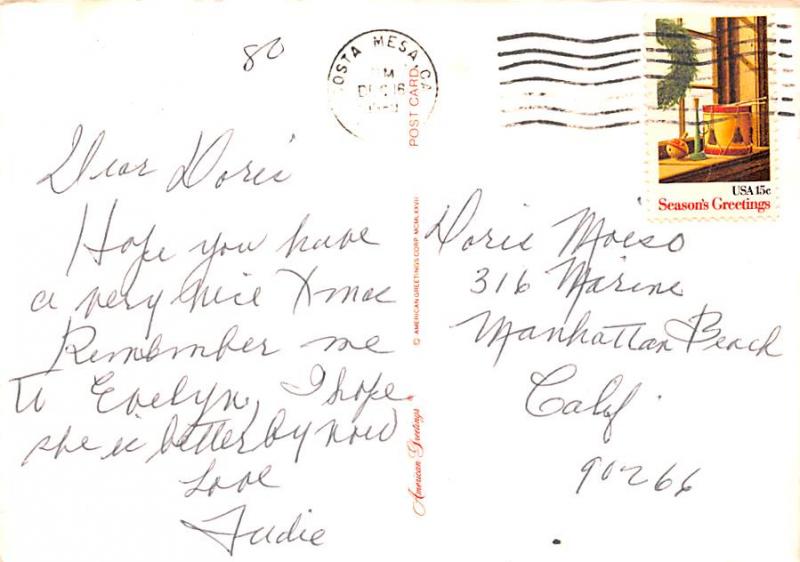 80
OSTA MESA CA
PM
DEC 16
1980
USA 15c
Season's Greetings
Dear Doris
Hope you have
a very nice Xmas
Remember me
to Evelyn, I hope
she is better by now
Love
Judie
POST CARD
© AMERICAN GREETINGS CORP. MCMLXXVII
American Greetings
Doris Moiso
316 Marine
Manhattan Beach
Calif.
90266